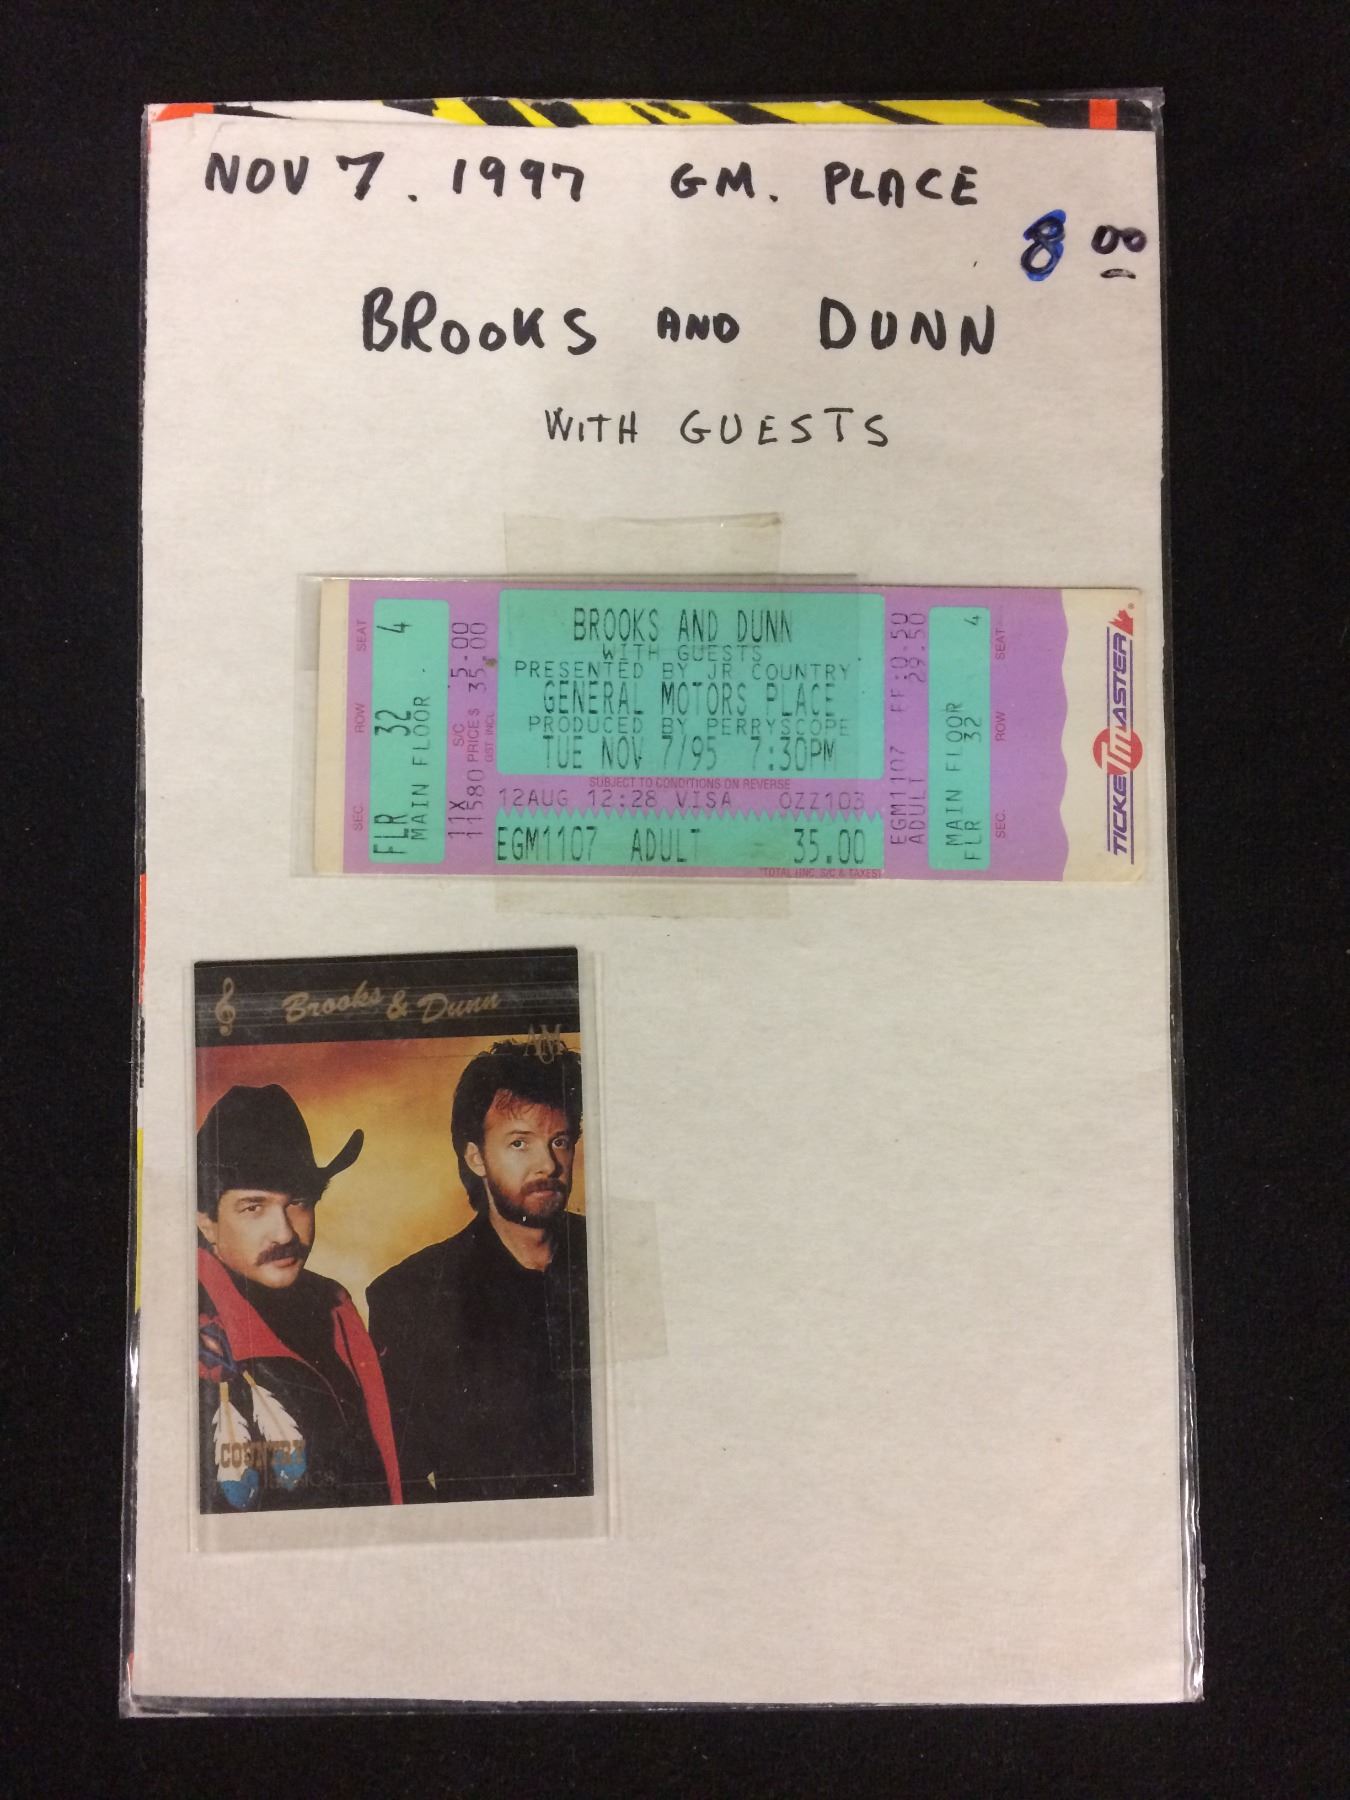 NOV 7. 1997 GM. PLACE
8 00
BROOKS AND DUNN
WITH GUESTS
SEC. ROW SEAT
FLR 32 4
MAIN FLOOR
11X S/C 5.00
11580 PRICE$ 35.00
GST INCL
BROOKS AND DUNN
WITH GUESTS
PRESENTED BY JR COUNTRY
GENERAL MOTORS PLACE
PRODUCED BY PERRYSCOPE
TUE NOV 7/95 7:30PM
SUBJECT TO CONDITIONS ON REVERSE
12AUG 12:28 VISA OZZ103
EGM1107 ADULT 35.00
TOTAL (INC. S/C & TAXES)
EGM1107 FF:0.50
ADULT 29.50
MAIN FLOOR
FLR 32 4
SEC. ROW SEAT
TICKETMASTER
Brooks & Dunn
ACM
COUNTRY